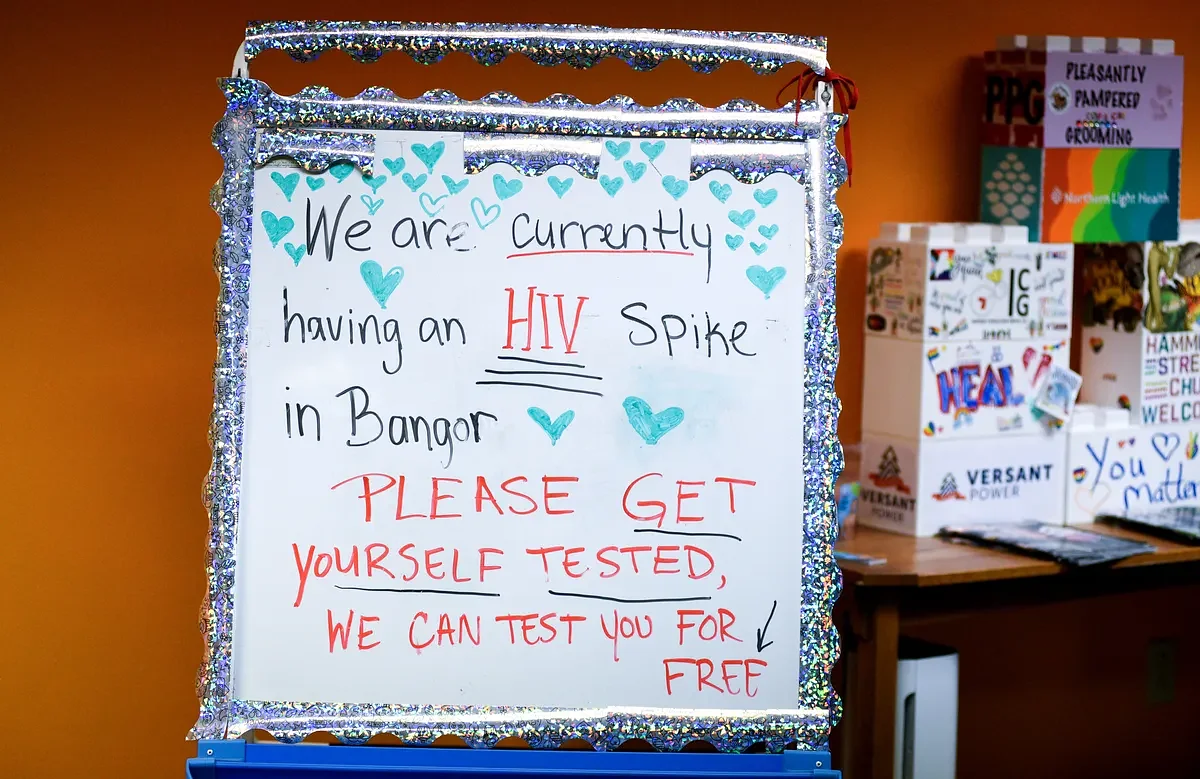 We are currently
having an HIV Spike
in Bangor
PLEASE GET
YOURSELF TESTED,
WE CAN TEST YOU FOR
FREE
PPG
PLEASANTLY
PAMPERED
GROOMING
Northern Light Health
ICG
HEAL
VERSANT
POWER
VERSANT
POWER
HAMM
STRE
CHU
WELCO
You
matter